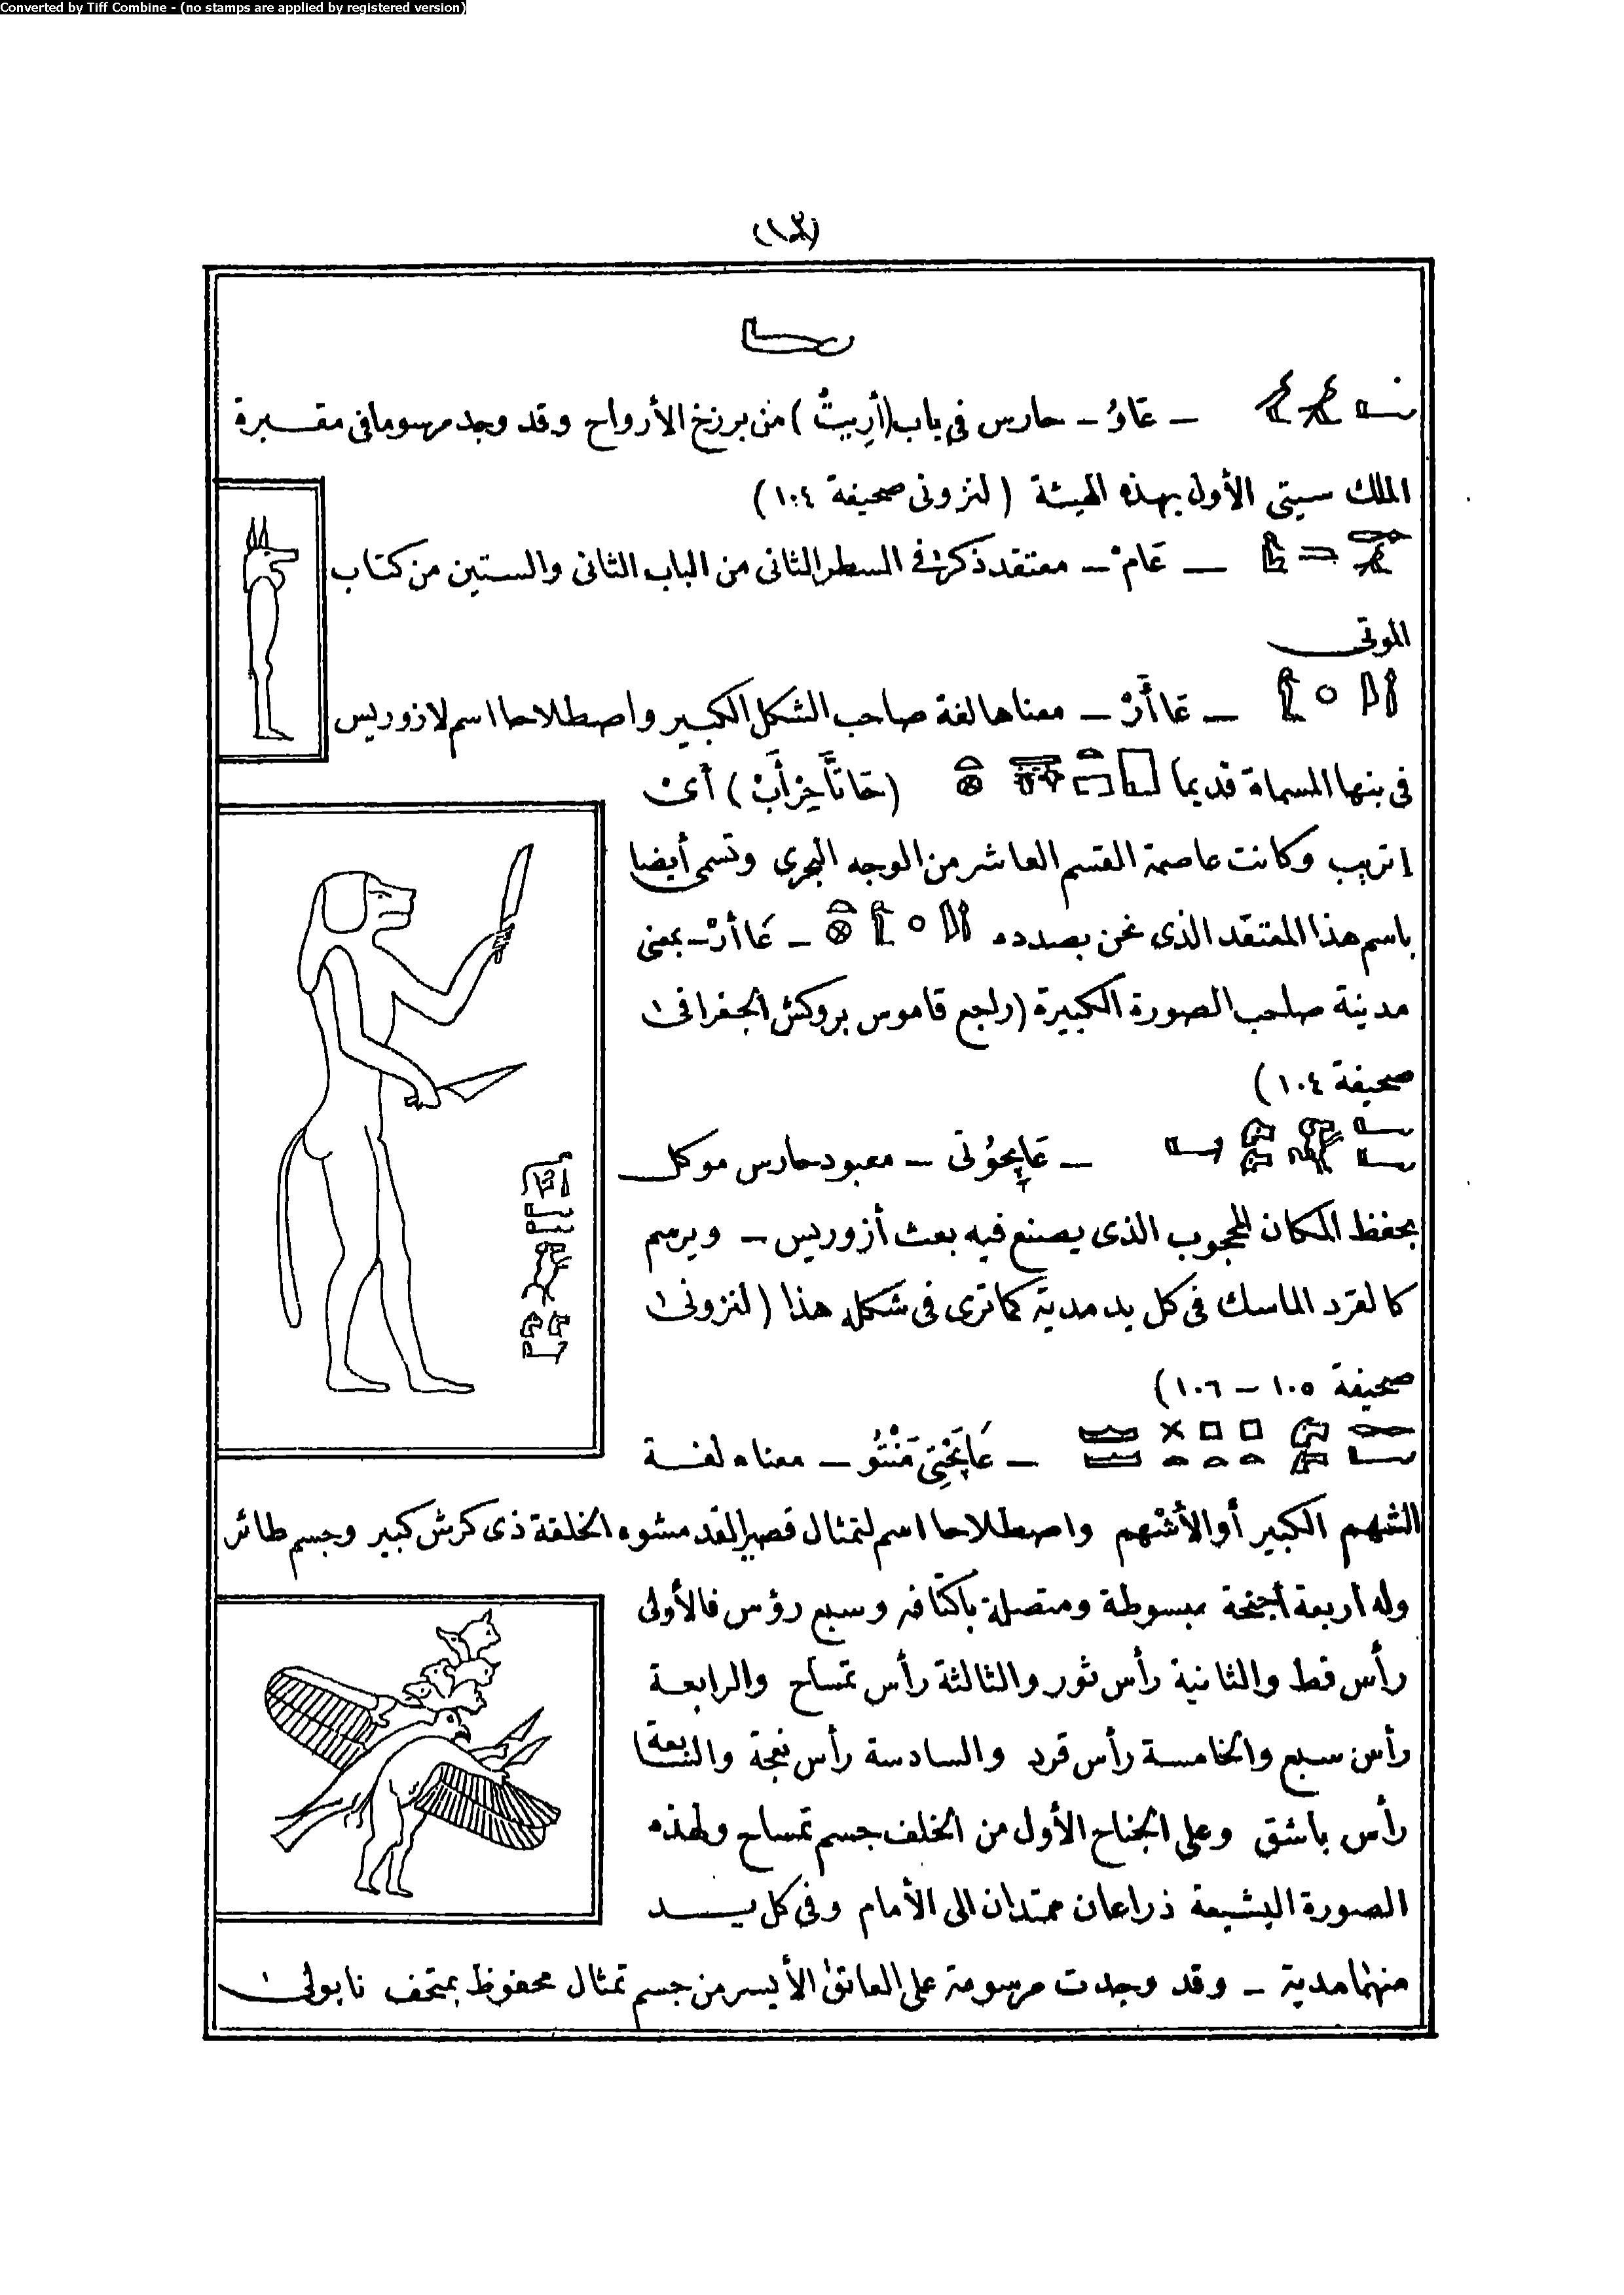 Converted by Tiff Combine - (no stamps are applied by registered version)
(١٣)
ـ عَاوُ ـ حارس فى باب (أَرِيتُ) من برزخ الأرواح وقد وجد مرسوما فى مقبرة
الملك سيتى الأول بهذه الهيئة (لنزونى صحيفة ١٠٤)
ـ عَامْ ـ معتقد ذكر فى السطر الثانى من الباب الثانى والستين من كتاب
الموتى
ـ عَا أَرْ ـ معناها لغة صاحب الشكل الكبير واصطلاحا اسم لازوريس
فى بنها المسماة قديما (حَاتَأَحِرْأَبْ) أى
اتريب وكانت عاصمة القسم العاشر من الوجه البحرى وتسمى أيضا
باسم هذا المعتقد الذى نحن بصدده ـ عَا أَرْ ـ بمعنى
مدينة صاحب الصورة الكبيرة (راجع قاموس بروكش الجغرافى
صحيفة ١٠٤)
ـ معبود حارس موكل
بحفظ المكان المحجوب الذى يصنع فيه بعث أزوريس ـ ويرسم
كالقرد الماسك فى كل يد مدية كما ترى فى شكله هذا (لنزونى
صحيفة ١٠٥ ـ ١٠٦)
ـ معناه لغة
الشهم الكبير أو الأشهم واصطلاحا اسم لتمثال قصير القد مشوه الخلقة ذى كرش كبير وجسم طائر
وله أربعة أجنحة مبسوطة ومتصلة بأكتافه وسبع رؤس فالأولى
رأس قط والثانية رأس ثور والثالثة رأس تمساح والرابعة
رأس سبع والخامسة رأس قرد والسادسة رأس نعجة والسابعة
رأس باشق وعلى الجناح الأول من الخلف جسم تمساح ولهذه
الصورة البشيعة ذراعان ممتدان الى الأمام وفى كل يد
منهما مدية ـ وقد وجدت مرسومة على العاتق الأيسر من جسم تمثال محفوظ بمتحف نابولى